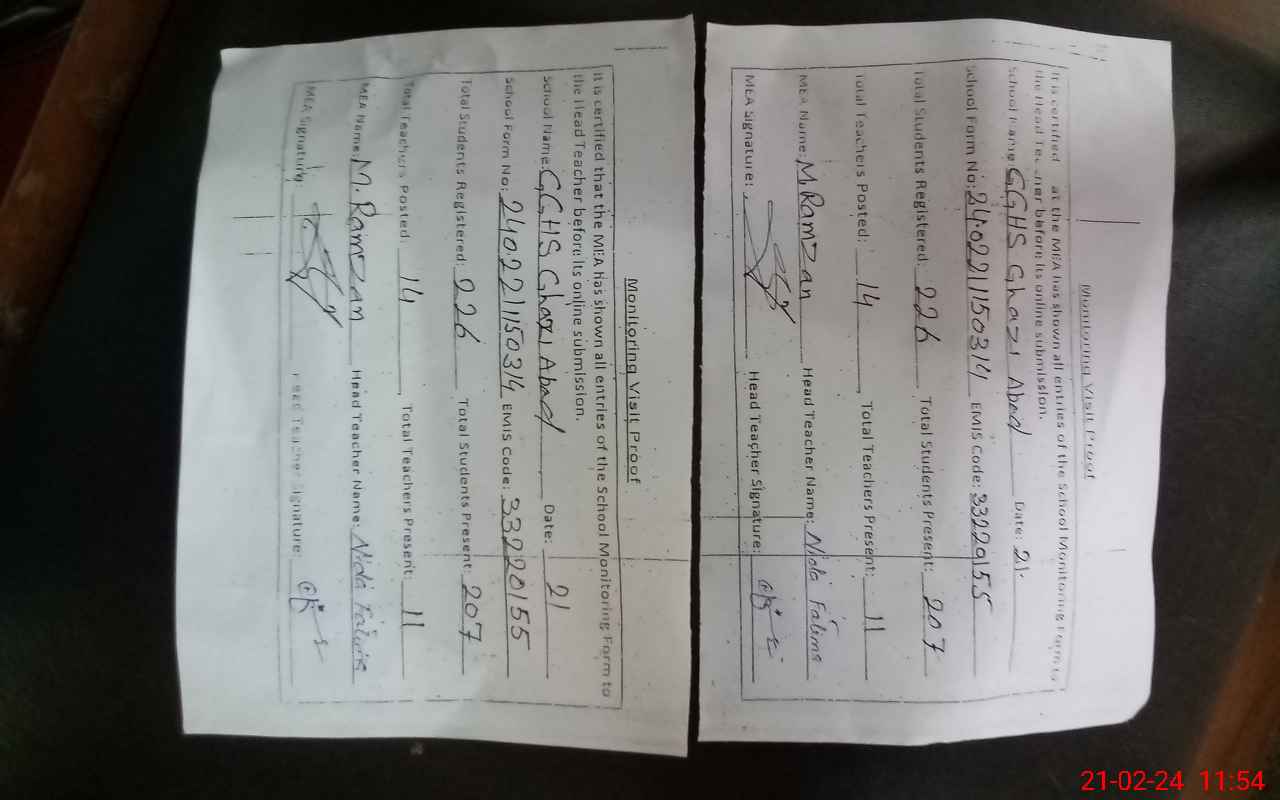 Monitoring Visit Proof
It is certified that the MEA has shown all entries of the School Monitoring Form to
the Head Teacher before its online submission.
School Name: GGHS Ghazi Abad Date: 21
School Form No: 2402211150314 EMIS Code: 33220155
Total Students Registered: 226 Total Students Present: 207
Total Teachers Posted: 14, Total Teachers Present: 11
MEA Name: M. Ramzan Head Teacher Name: Nida Fatima
MEA Signature: Head Teacher Signature:
Monitoring Visit Proof
It is certified at the MEA has shown all entries of the School Monitoring Form to
the Head before its online submission.
School Name: GGHS Ghazi Abad Date: 21.
School Form No: 2402211150314 EMIS Code: 33220155
Total Students Registered: 226, Total Students Present: 207
Total Teachers Posted: 14, Total Teachers Present: 11
MEA Name: M. Ramzan Head Teacher Name: Nida Fatima
MEA Signature: Head Teacher Signature:
21-02-24 11:54